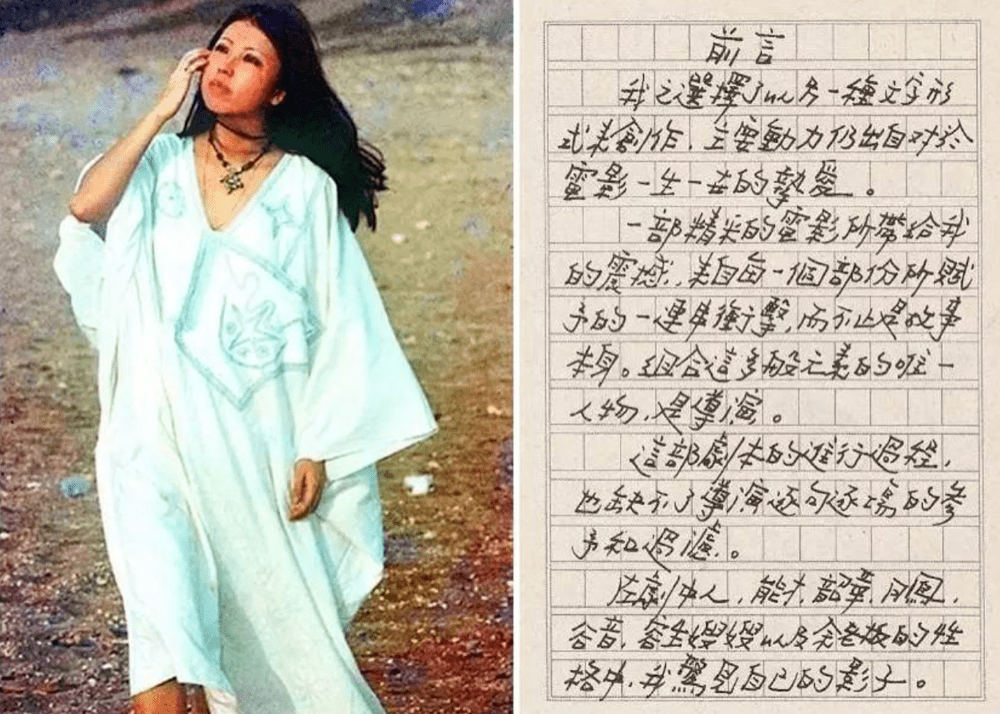 前言
我之選擇了以另一種文字形
式來創作，主要動力仍出自对於
電影一生一世的摯愛。
一部精采的電影所帶給我
的震撼，來自每一個部份所賦
予的一連串衝擊，而不止是故事
本身。組合這多般元素的唯一
人物，是導演。
這部劇本的進行過程，
也缺不了導演逐句逐場的參
予和過濾。
在劇中人，能才，韶華，月鳳，
谷音，容生嫂嫂以及余老板的性
格中，我驚見自己的影子。